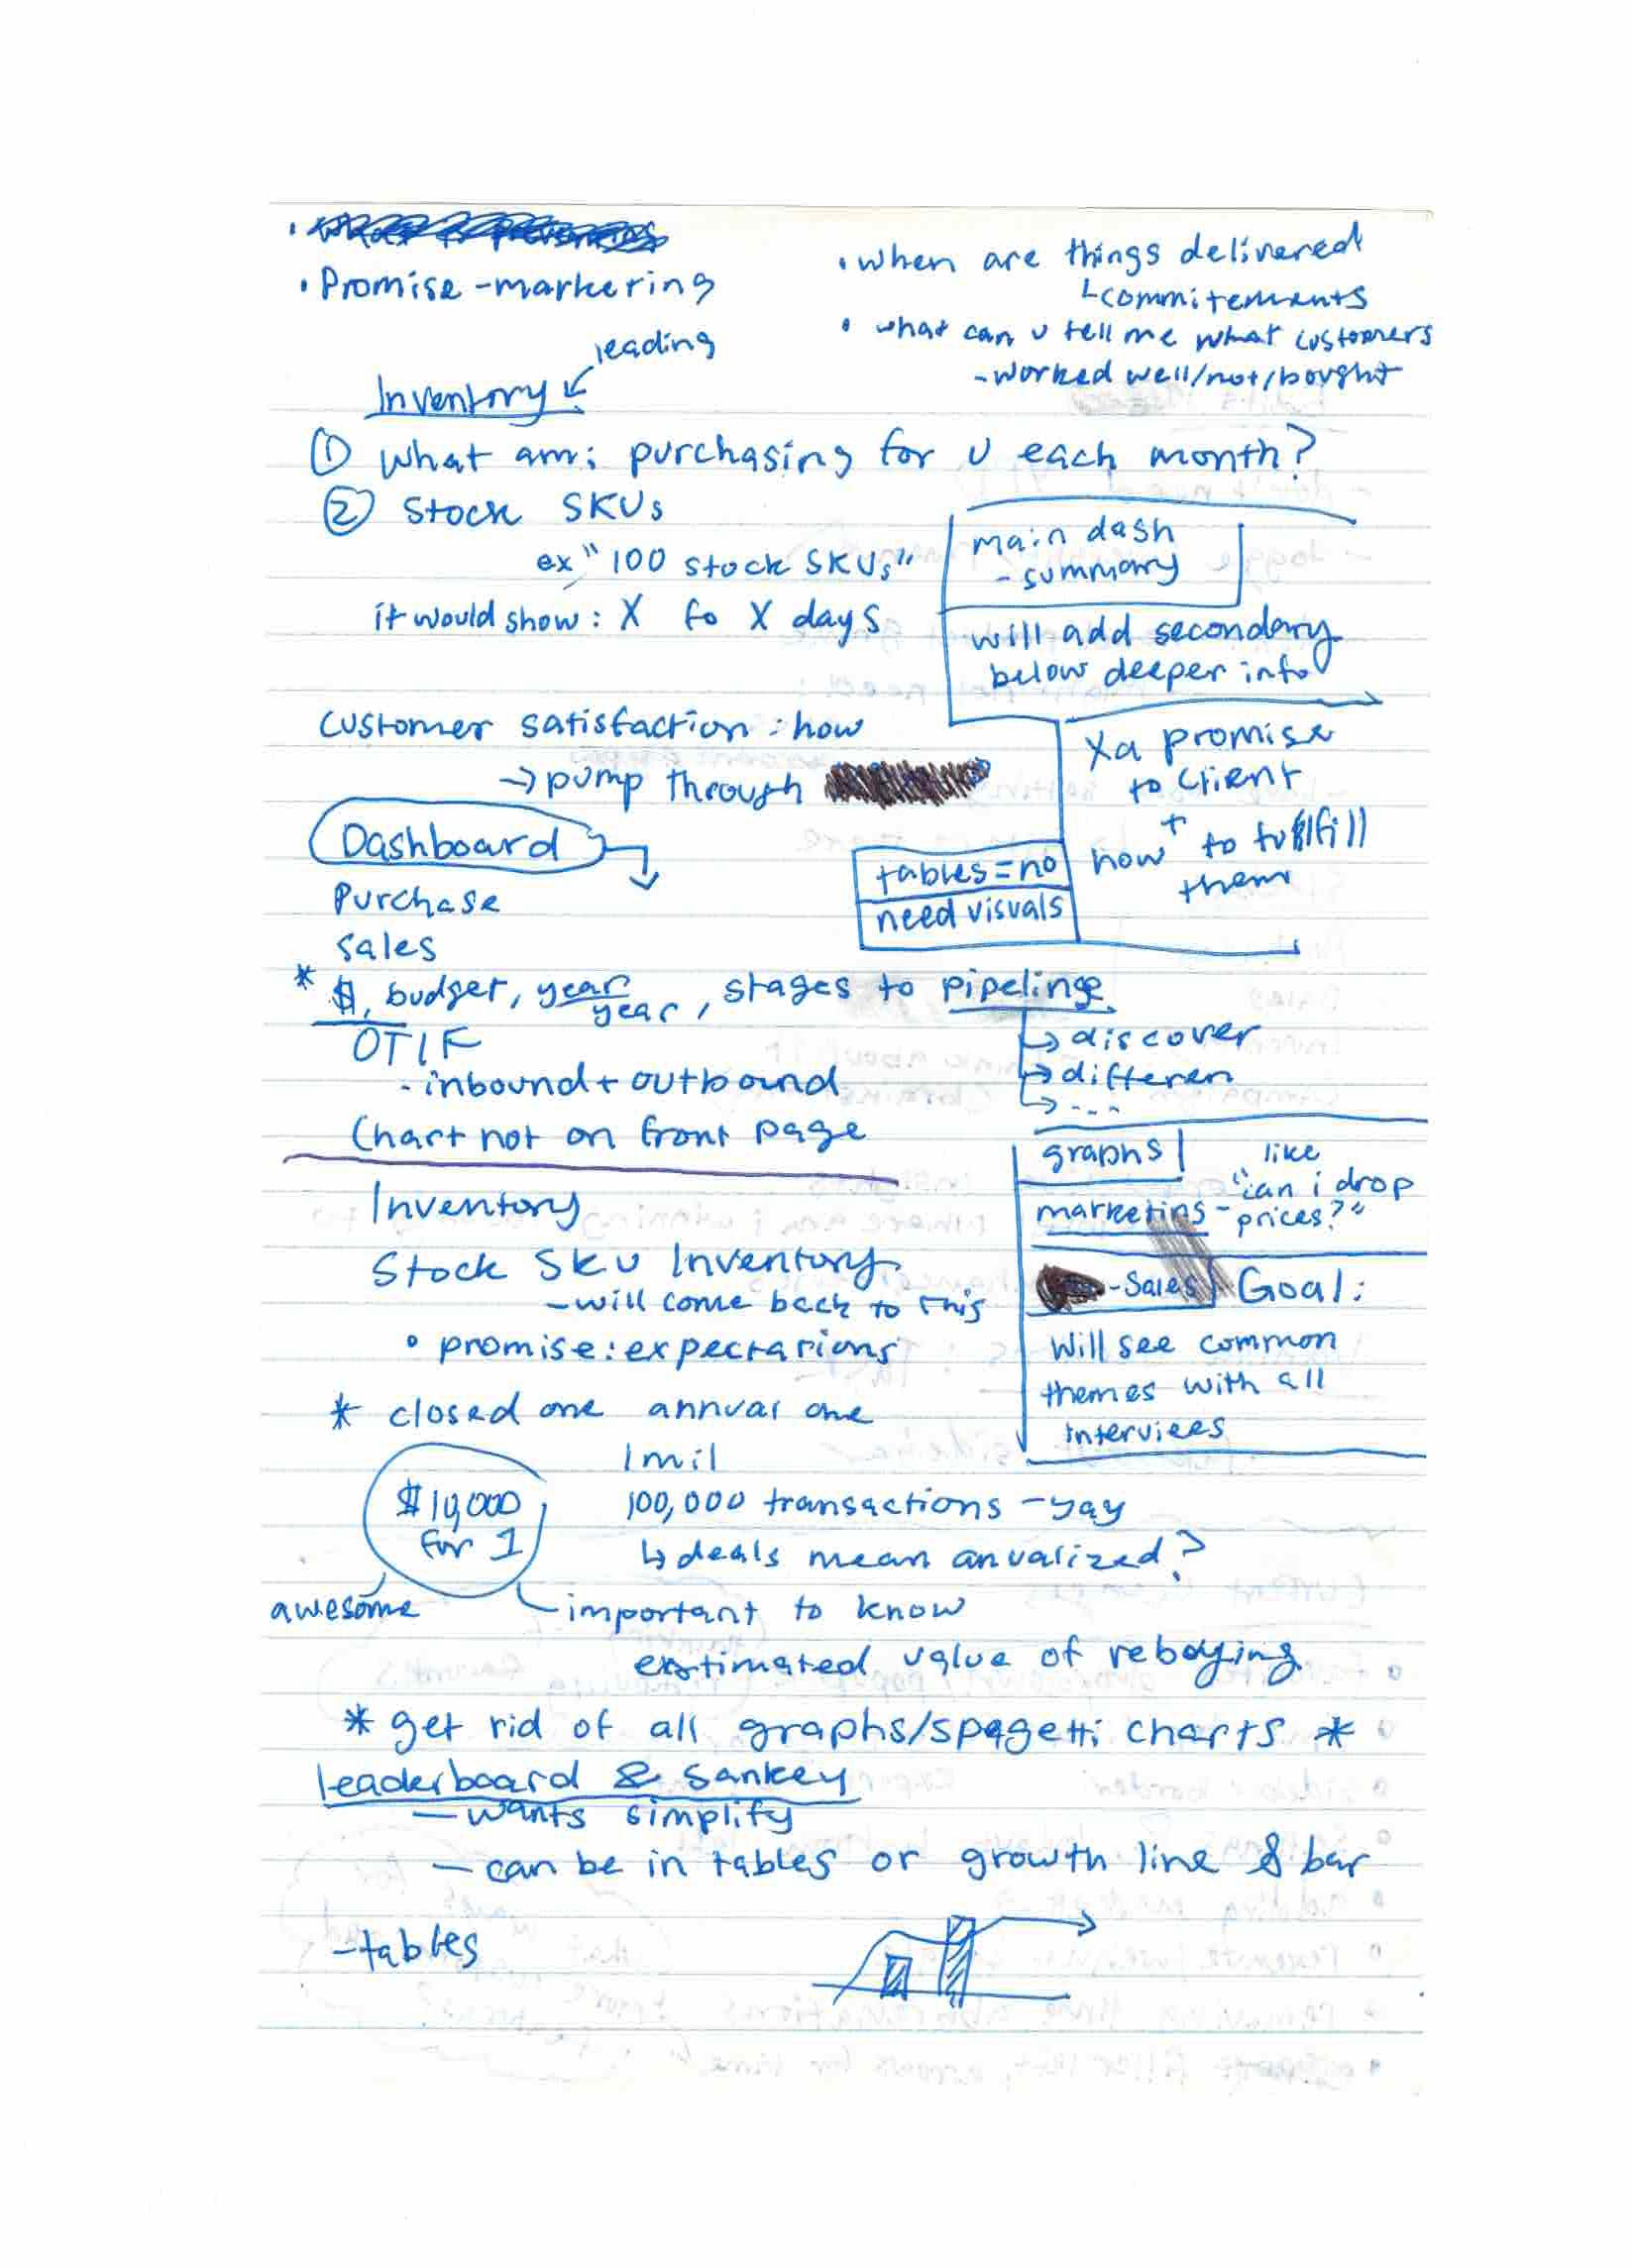 • Promise - marketing
• when are things delivered
commitements
• what can u tell me what customers
- worked well/not/bought
leading
Inventory
① what am i purchasing for U each month?
② Stock SKUs
ex "100 stock SKUs"
it would show: X fo X days
main dash
- summary
will add secondary
below deeper info
customer satisfaction : how
→ pump through
Xa promise
to client
+
how to fulfill
them
Dashboard
tables = no
need visuals
Purchase
Sales
* $, budget, year year, stages to pipeline
→ discover
→ differen
→ ---
OTIF
- inbound + outbound
Chart not on front page
graphs
marketing - like "can i drop prices?"
- Sales
Goal:
Will see common
themes with all
interviees
Inventory
Stock SKU Inventory
- will come back to this
• promise: expectations
* closed one annual one
1 mil
$10,000
for 1
100,000 transactions - yay
↳ deals mean anualized?
awesome
important to know
estimated value of rebuying
* get rid of all graphs/spagetti charts *
leaderboard & sankey
- wants simplify
- can be in tables or growth line & bar
- tables